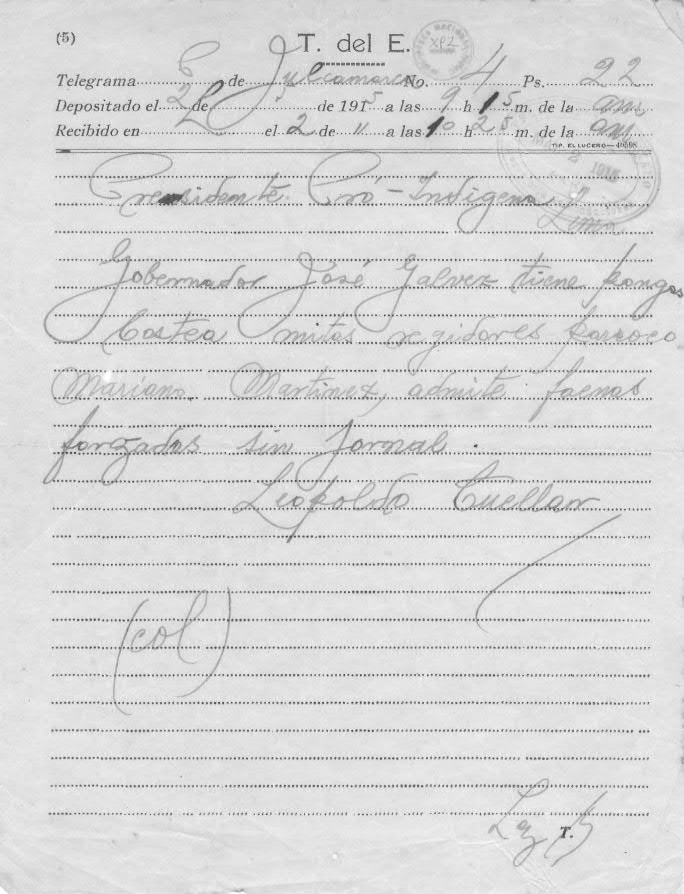 (5)
T. del E.
Telegrama C de Julcamarca No. 4 Ps. 22
Depositado el 2 de de 1915 a las 9 h 15 m. de la am
Recibido en el 2 de 11 a las 10 h 25 m. de la am
TIP. EL LUCERO—40598
Presidente Pró-Indigena
Lima
Gobernador José Galvez tiene pongos
Costea mitas regidores párroco
Mariano Martinez, admite faenas
forzadas sin jornal.
Leopoldo Cuellar
(col)
T.